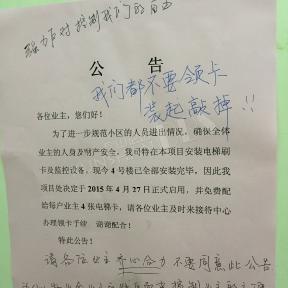 反对控制我们的自由
公 告
我们都不要领卡
装起敲掉!!
各位业主，您们好!
为了进一步规范小区的人员进出情况，确保全体
业主的人身及财产安全，我司特在本项目安装电梯刷
卡及监控设备，现今 4 号楼已全部安装完毕，因此我
项目处决定于 2015 年 4 月 27 日正式启用，并免费配
给每户业主 4 张电梯卡，请各位业主及时来接待中心
办理领卡手续 谢谢配合!
特此公告!
请各位业主齐心合力不要同意此公告